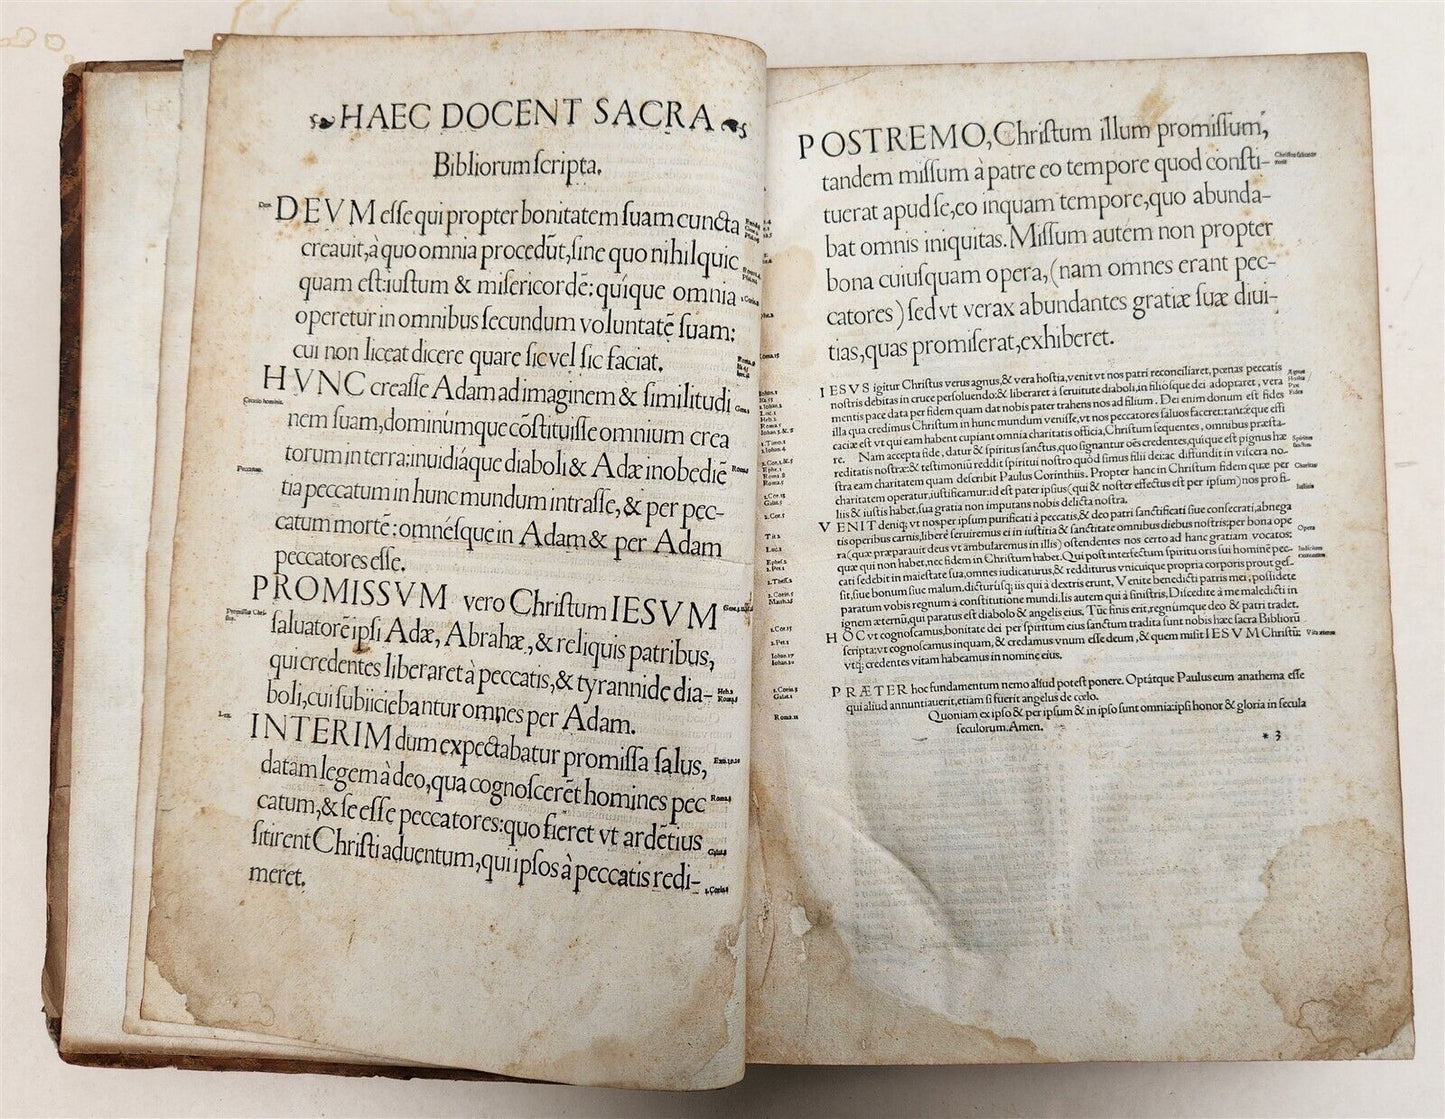 HAEC DOCENT SACRA
Bibliorum ſcripta.
DEVM eſſe qui propter bonitatem ſuam cuncta
creauit, à quo omnia procedũt, ſine quo nihil quic
quam eſt: iuſtum & miſericordẽ: quíque omnia
operetur in omnibus ſecundum voluntatẽ ſuam:
cui non liceat dicere quare ſic vel ſic faciat.
HVNC creaſſe Adam ad imaginem & ſimilitudi
nem ſuam, dominúmque cõſtituiſſe omnium crea
torum in terra: inuidiáque diaboli & Adæ inobediẽ
tia peccatum in hunc mundum intraſſe, & per pec-
catum mortẽ: omnéſque in Adam & per Adam
peccatores eſſe.
PROMISSVM vero Chriſtum IESVM
ſaluatorẽ ipſi Adæ, Abrahæ, & reliquis patribus,
qui credentes liberaret à peccatis, & tyrannide dia-
boli, cui ſubiiciebantur omnes per Adam.
INTERIM dum expectabatur promiſſa ſalus,
datam legem à deo, qua cognoſcerẽt homines pec
catum, & ſe eſſe peccatores: quo fieret vt ardẽtius
ſitirent Chriſti aduentum, qui ipſos à peccatis redi-
meret.
Creatio hominis.
Peccatum.
Lex.
POSTREMO, Chriſtum illum promiſſum,
tandem miſſum à patre eo tempore quod conſti-
tuerat apud ſe, eo inquam tempore, quo abunda-
bat omnis iniquitas. Miſſum autem non propter
bona cuiuſquam opera, (nam omnes erant pec-
catores) ſed vt verax abundantes gratiæ ſuæ diui-
tias, quas promiſerat, exhiberet.
IESVS igitur Chriſtus verus agnus, & vera hoſtia, venit vt nos patri reconciliaret, pœnas peccatis
noſtris debitas in cruce perſoluendo: & liberaret à ſeruitute diaboli, in filioſque dei adoptaret, vera
mentis pace data per fidem quam dat nobis pater trahens nos ad filium. Dei enim donum eſt fides
illa qua credimus Chriſtum in hunc mundum veniſſe, vt nos peccatores ſaluos faceret: tantæque effi
caciæ eſt vt qui eam habent cupiant omnia charitatis officia, Chriſtum ſequentes, omnibus præſta-
re. Nam accepta fide, datur & ſpiritus ſanctus, quo ſignantur oẽs credentes, quique eſt pignus hæ
reditatis noſtræ: & teſtimoniũ reddit ſpiritui noſtro quòd ſimus filii dei: ac diffundit in viſcera no-
ſtra eam charitatem quam deſcribit Paulus Corinthiis. Propter hanc in Chriſtum fidem quæ per
charitatem operatur, iuſtificamur: id eſt pater ipſius (qui & noſter effectus eſt per ipſum) nos pro fi-
liis & iuſtis habet, ſua gratia non imputans nobis delicta noſtra.
VENIT deniq; vt nos per ipſum purificati à peccatis, & deo patri ſanctificati ſiue conſecrati, abnega
tis operibus carnis, liberè ſeruiremus ei in iuſtitia & ſanctitate omnibus diebus noſtris: per bona ope
ra (quæ præparauit deus vt ambularemus in illis) oſtendentes nos certo ad hanc gratiam vocatos:
quæ qui non habet, nec fidem in Chriſtum habet. Qui poſt interfectum ſpiritu oris ſui hominẽ pec-
cati ſedebit in maieſtate ſua, omnes iudicaturus, & redditurus vnicuique propria corporis prout geſ-
ſit, ſiue bonum ſiue malum. dicturúſq; iis qui à dextris erunt, Venite benedicti patris mei, poſſidete
paratum vobis regnum à conſtitutione mundi. Iis autem qui à ſiniſtris, Diſcedite à me maledicti in
ignem æternũ, qui paratus eſt diabolo & angelis eius. Tũc finis erit, regnúmque deo & patri tradet.
HOC vt cognoſcamus, bonitate dei per ſpiritum eius ſanctum tradita ſunt nobis hæc ſacra Bibliorũ
ſcripta: vt cognoſcamus inquam, & credamus vnum eſſe deum, & quem miſit IESVM Chriſtũ:
vtq; credentes vitam habeamus in nomine eius.
PRÆTER hoc fundamentum nemo aliud poteſt ponere. Optátque Paulus eum anathema eſſe
qui aliud annuntiauerit, etiam ſi fuerit angelus de cœlo.
Quoniam ex ipſo & per ipſum & in ipſo ſunt omnia: ipſi honor & gloria in ſecula
ſeculorum. Amen.
* 3
Fides
Charitas
Opera
Vita æterna